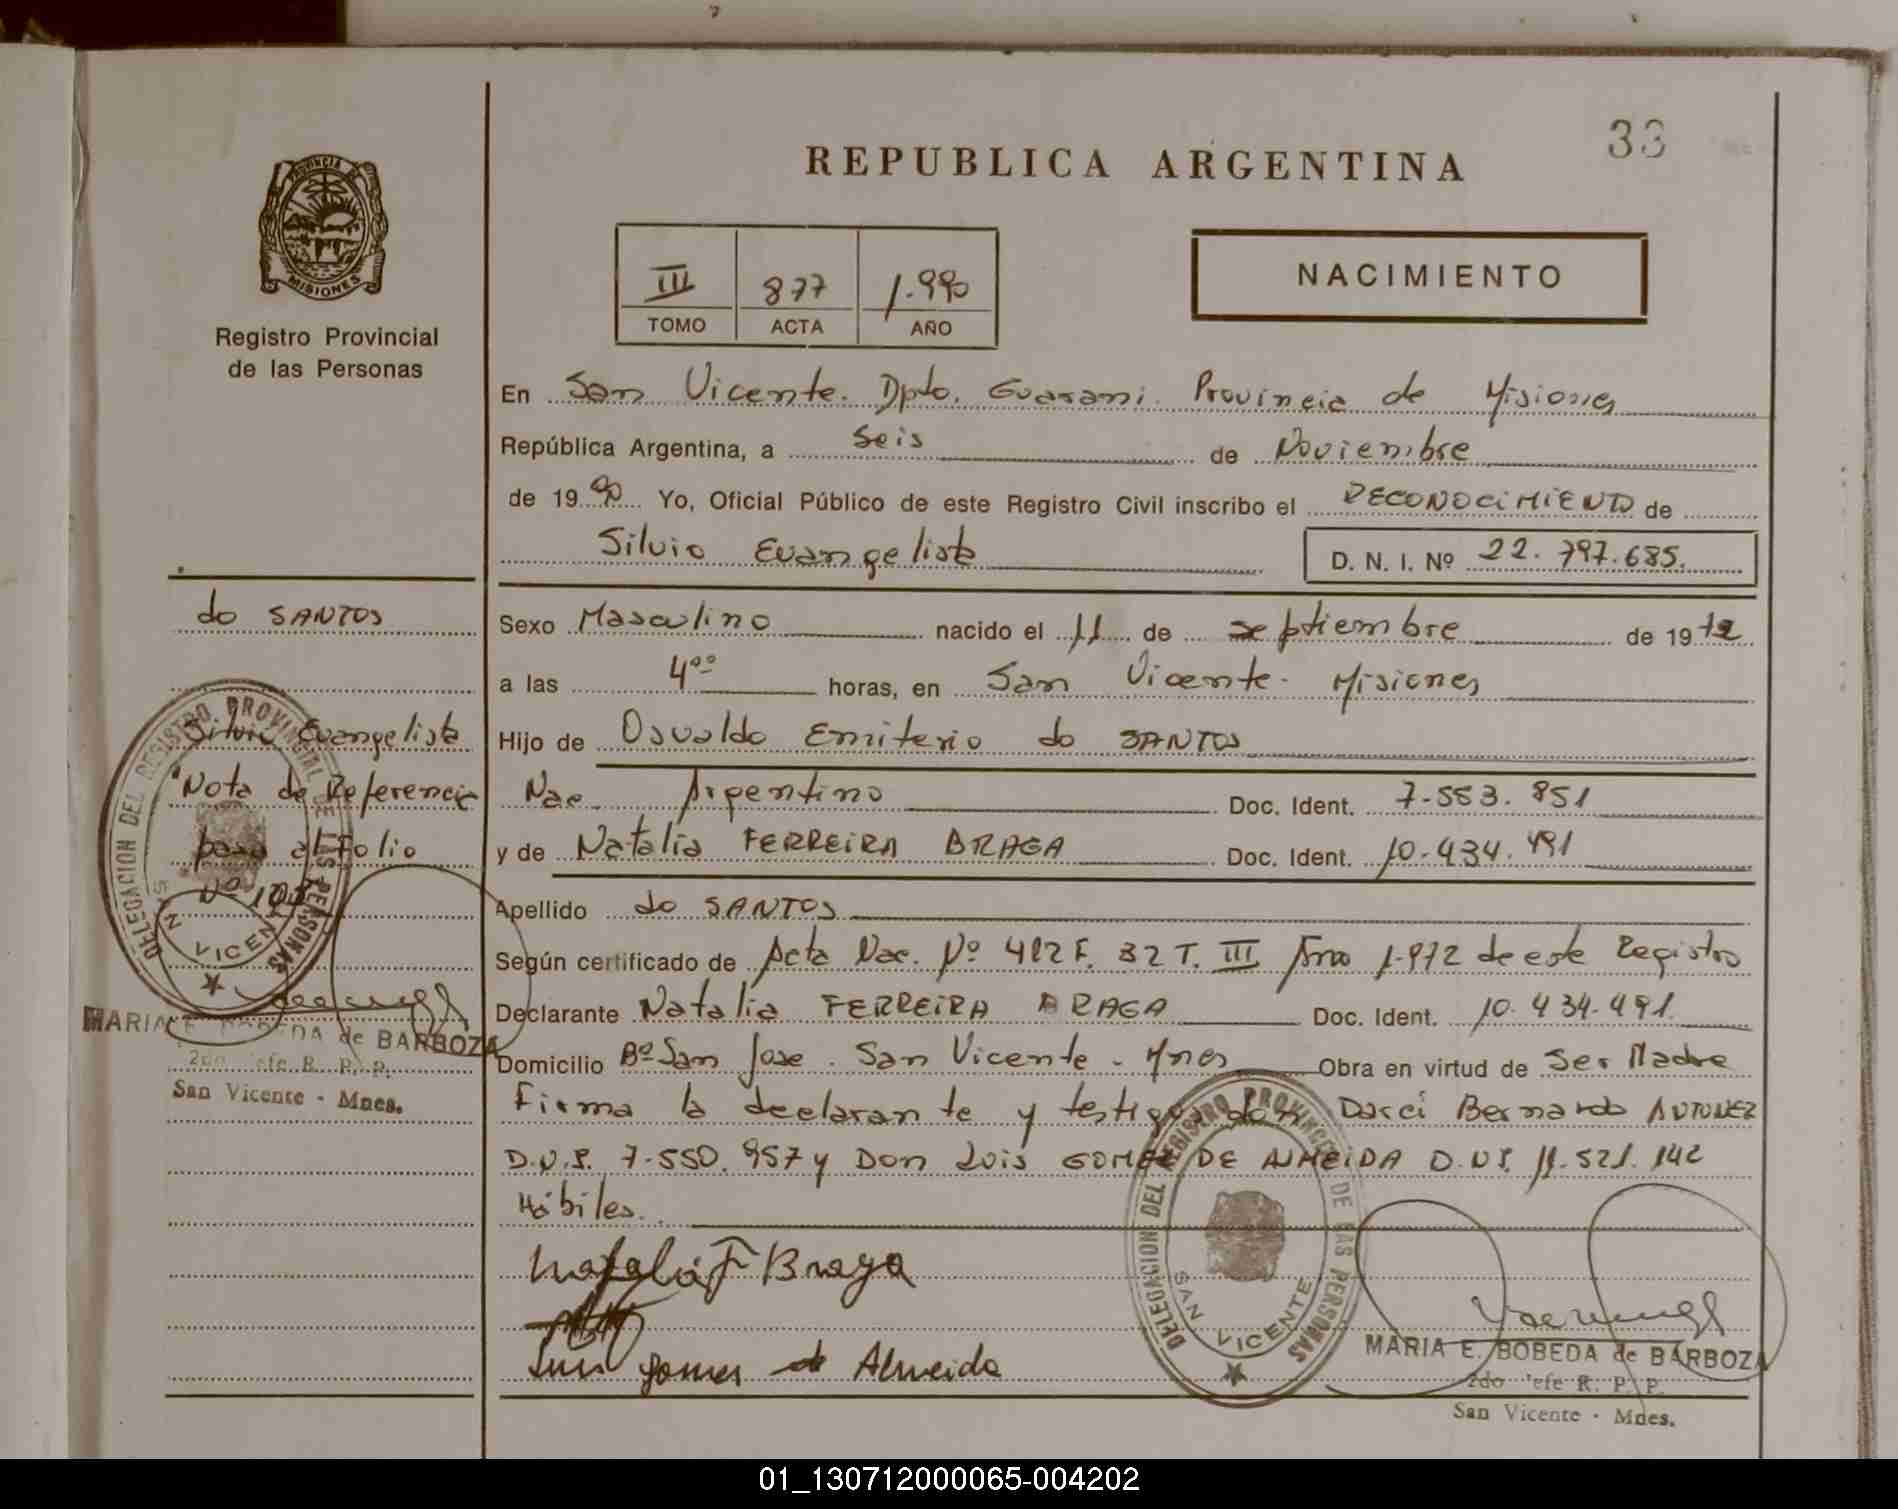 33
REPUBLICA ARGENTINA
PROVINCIA DE
MISIONES
Registro Provincial
de las Personas
III 877 1.990
TOMO ACTA AÑO
NACIMIENTO
En San Vicente. Dpto. Guarani. Provincia de Misiones
República Argentina, a Seis de Noviembre
de 1990 Yo, Oficial Público de este Registro Civil inscribo el RECONOCIMIENTO de
Silvio Evangelista D. N. I. Nº 22.797.685.
Sexo Masculino nacido el 11 de septiembre de 1972
a las 4ºº horas, en San Vicente. Misiones
Hijo de Osvaldo Emiterio do SANTOS
Nac. Argentino Doc. Ident. 7.553.851
y de Natalia FERREIRA BRAGA Doc. Ident. 10.434.491
Apellido do SANTOS
Según certificado de Acta Nac. Nº 482 F. 32 T. III Año 1.972 de este Registro
Declarante Natalia FERREIRA BRAGA Doc. Ident. 10.434.491.
Domicilio Bº San Jose. San Vicente - Mnes Obra en virtud de Ser Madre
Firma la declarante y testigos don Darci Bernardo ANTUNEZ
D.N.I. 7.550.957 y Don Luis GOMEZ DE ALMEIDA D.N.I. 11.521.142
Hábiles.
Natalia F Braga
Luis gomes de Almeida
DELEGACION DEL REGISTRO PROVINCIAL DE LAS PERSONAS
SAN VICENTE
MARIA E. BOBEDA de BARBOZA
2do Jefe R. P. P.
San Vicente - Mnes.
do SANTOS
Silvio Evangelista
Nota de Referencia
pasa al Folio
Nº 103
DELEGACION DEL REGISTRO PROVINCIAL DE LAS PERSONAS
SAN VICEN
MARIA E. BOBEDA de BARBOZA
2do Jefe R. P. P.
San Vicente - Mnes.
01_130712000065-004202